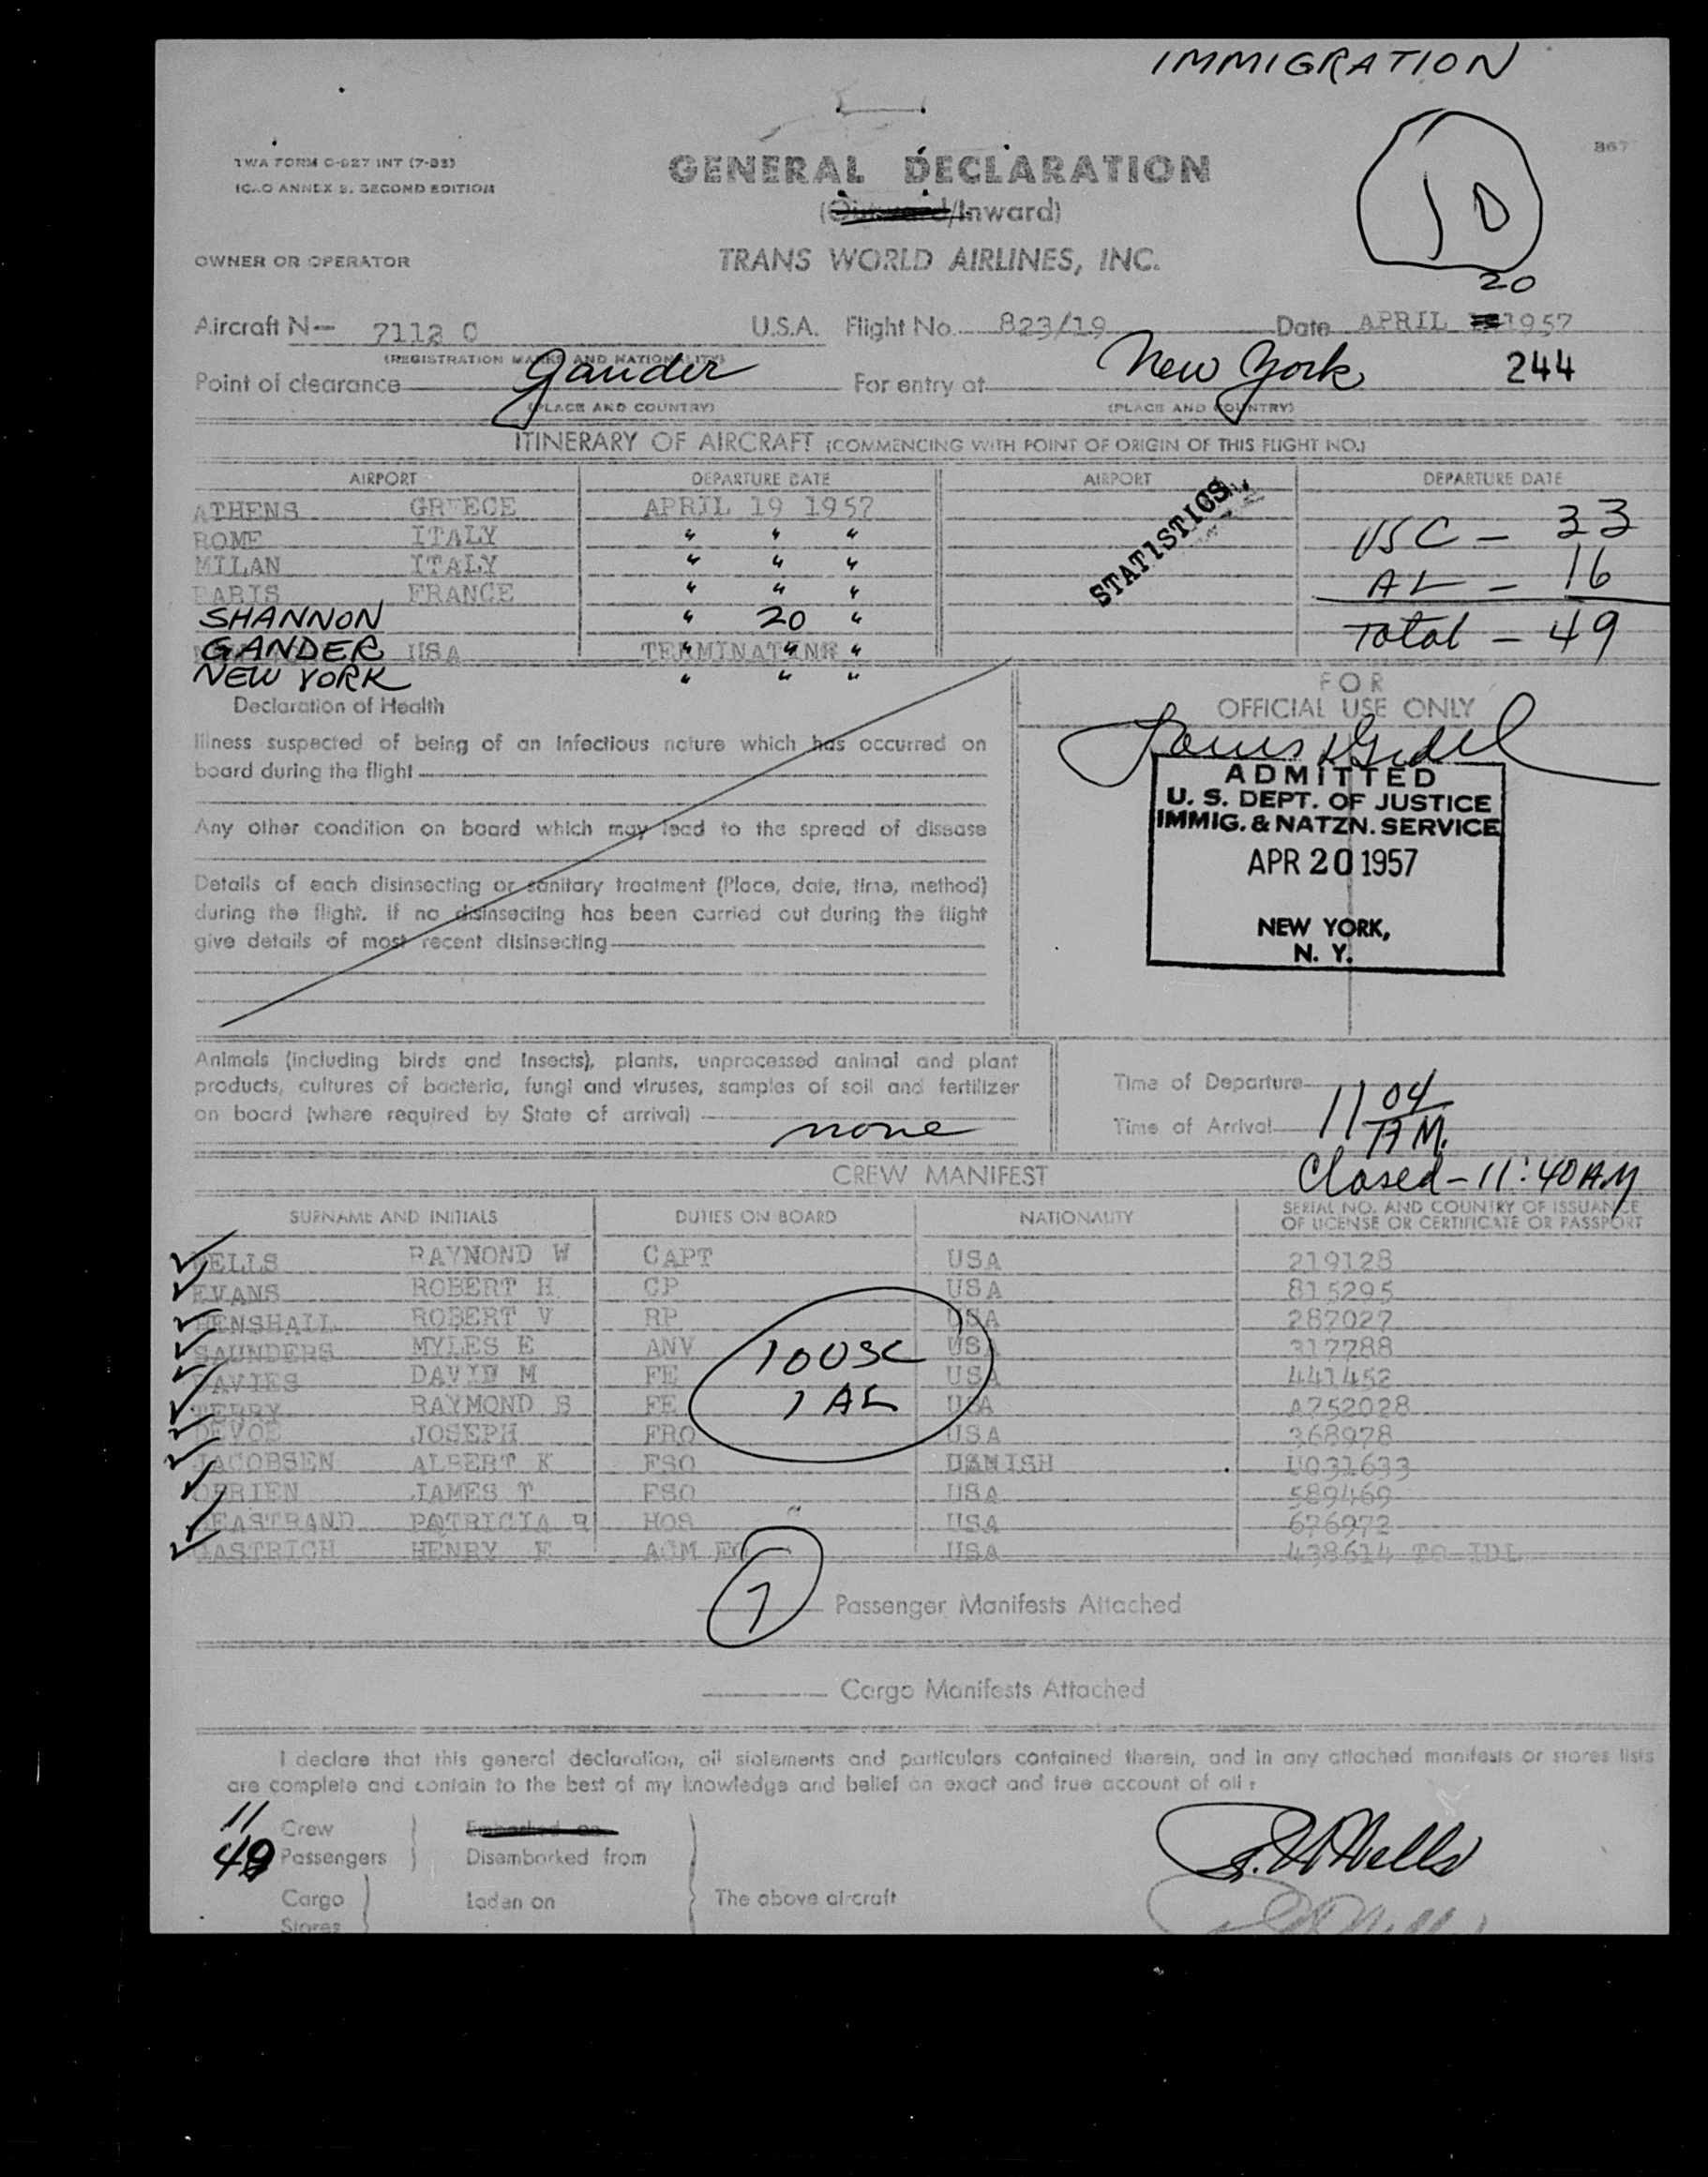 IMMIGRATION
TWA FORM C-827 INT (7-53)
ICAO ANNEX 9. SECOND EDITION
867
GENERAL DECLARATION
(Outward/Inward)
10
OWNER OR OPERATOR
TRANS WORLD AIRLINES, INC.
20
Aircraft N— 7112 C U.S.A. Flight No. 823/19 Date APRIL 1957
(REGISTRATION MARKS AND NATIONALITY)
Point of clearance Gander For entry at New York 244
(PLACE AND COUNTRY) (PLACE AND COUNTRY)
ITINERARY OF AIRCRAFT (COMMENCING WITH POINT OF ORIGIN OF THIS FLIGHT NO.)
AIRPORT DEPARTURE DATE AIRPORT DEPARTURE DATE
ATHENS GREECE APRIL 19 1957
ROME ITALY " " "
MILAN ITALY " " "
PARIS FRANCE " " "
SHANNON " 20 "
GANDER USA TERMINATING " " "
NEW YORK " " "
STATISTICS
USC - 33
AL - 16
Total - 49
Declaration of Health
Illness suspected of being of an infectious nature which has occurred on
board during the flight
Any other condition on board which may lead to the spread of disease
Details of each disinsecting or sanitary treatment (Place, date, time, method)
during the flight. If no disinsecting has been carried out during the flight
give details of most recent disinsecting
FOR
OFFICIAL USE ONLY
ADMITTED
U. S. DEPT. OF JUSTICE
IMMIG. & NATZN. SERVICE
APR 20 1957
NEW YORK,
N. Y.
Animals (including birds and insects), plants, unprocessed animal and plant
products, cultures of bacteria, fungi and viruses, samples of soil and fertilizer
on board (where required by State of arrival)
none
Time of Departure
Time of Arrival 11 04 A.M.
Closed - 11:40 AM
CREW MANIFEST
SURNAME AND INITIALS DUTIES ON BOARD NATIONALITY SERIAL NO. AND COUNTRY OF ISSUANCE
OF LICENSE OR CERTIFICATE OR PASSPORT
WELLS RAYNOND W CAPT USA 219128
EVANS ROBERT H CP USA 815295
HENSHALL ROBERT V RP USA 287027
SAUNDERS MYLES E ANV USA 317788
DAVIES DAVID M FE USA 441452
TERRY RAYMOND S FE USA A752028
DEVOE JOSEPH FRO USA 368978
JACOBSEN ALBERT K FSO DANISH U031633
OBRIEN JAMES T FSO USA 589469
PATRICIA HOS USA 676972
GASTRICH HENRY F USA 438614 TO IDL
10 USC
1 AL
7 Passenger Manifests Attached
Cargo Manifests Attached
I declare that this general declaration, all statements and particulars contained therein, and in any attached manifests or stores lists
are complete and contain to the best of my knowledge and belief an exact and true account of all:
11 Crew Embarked on
49 Passengers Disembarked from
Cargo Laden on The above aircraft
Stores
R.W. Wells